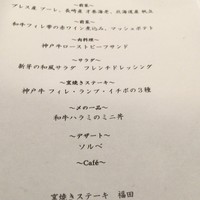 ～前菜～
ブレス産 プーレ、長崎産 才巻海老、北海道産 帆立
～前菜～
和牛フィレ帯の赤ワイン煮込み、マッシュポテト
～肉料理～
神戸牛ローストビーフサンド
～サラダ～
新芽の和風サラダ フレンチドレッシング
～窯焼きステーキ～
神戸牛 フィレ・ランプ・イチボの３種
～〆の一品～
和牛ハラミのミニ丼
～デザート～
ソルベ
～Café～
窯焼きステーキ 福田